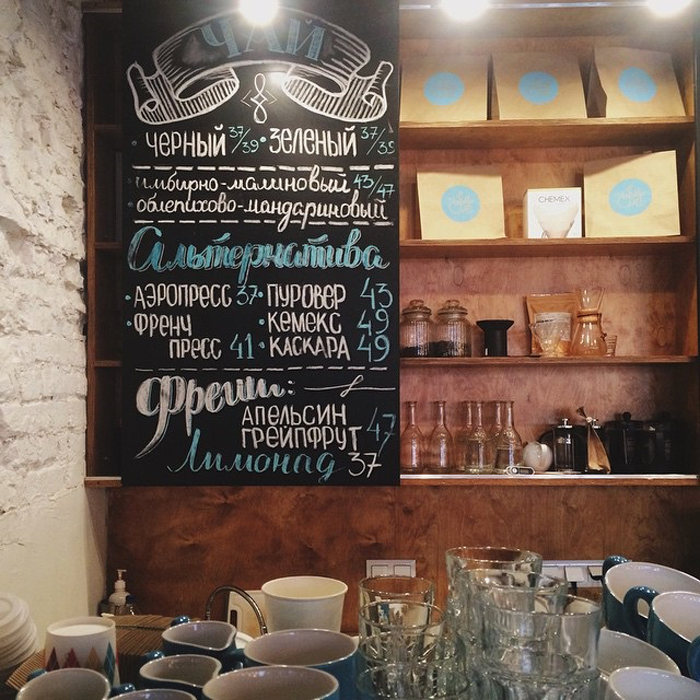 ЧАЙ
• ЧЕРНЫЙ 37/39 • ЗЕЛЕНЫЙ 37/39
• имбирно-малиновый 43/47
• облепихово-мандариновый
Альтернатива
• АЭРОПРЕСС 37 • ПУРОВЕР 43
• ФРЕНЧ • КЕМЕКС 49
ПРЕСС 41 • КАСКАРА 49
Фреши:
АПЕЛЬСИН
ГРЕЙПФРУТ 47
Лимонад 37
CHEMEX